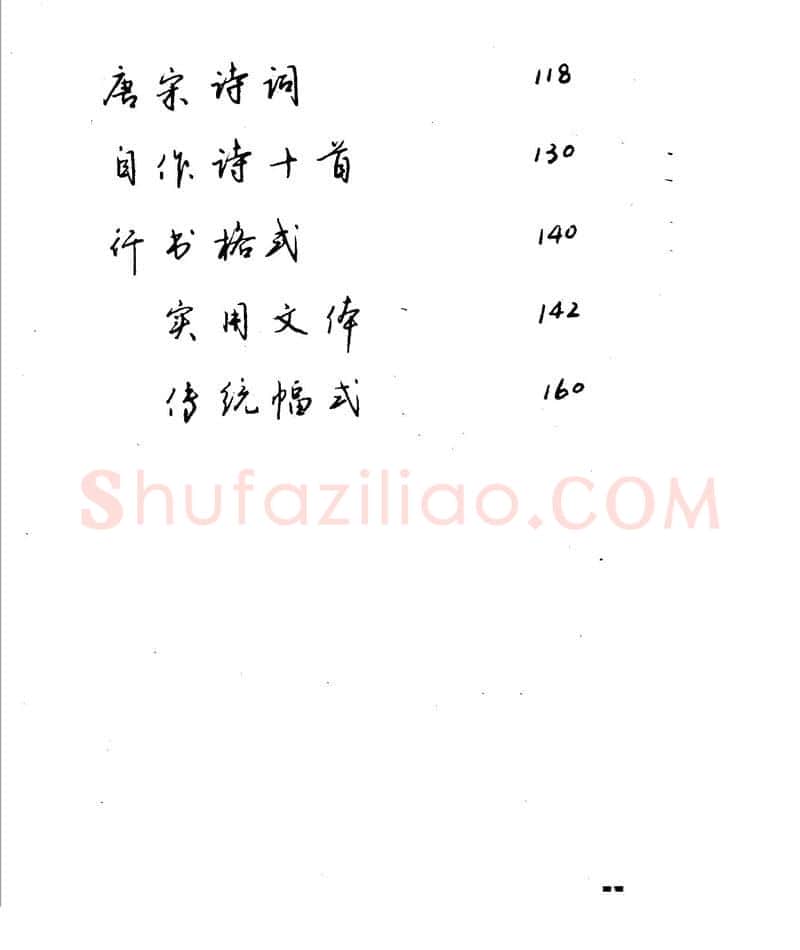 唐宋诗词 118
自作诗十首 130
行书格式 140
实用文体 142
传统幅式 160
Shufaziliao.COM